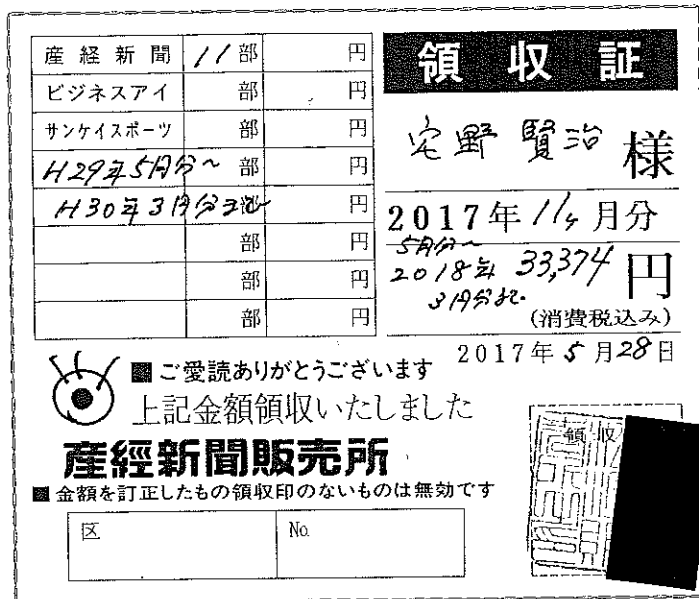 産経新聞 11部 円
ビジネスアイ 部 円
サンケイスポーツ 部 円
H29年5月分～ 部 円
H30年3月分まで 部 円
部 円
部 円
部 円
領収証
宅野 賢治 様
2017年11ヶ月分
5月分～
2018年 33,374円
3月分まで.
(消費税込み)
2017年5月28日
■ご愛読ありがとうございます
上記金額領収いたしました
産經新聞販売所
■金額を訂正したもの領収印のないものは無効です
区 No.
領収